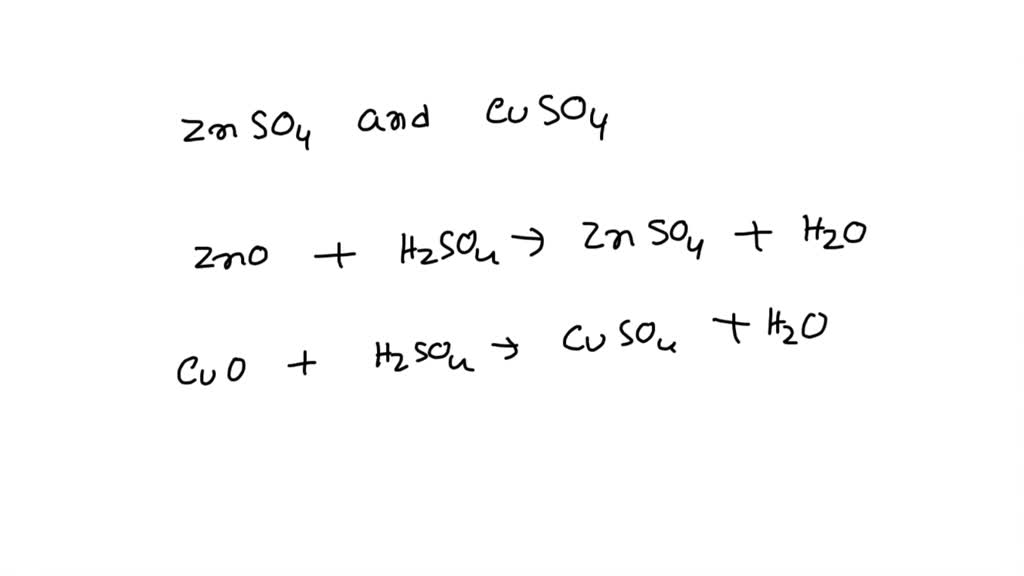 ZnSO4 and CuSO4
ZnO + H2SO4 → ZnSO4 + H2O
CuO + H2SO4 → CuSO4 + H2O